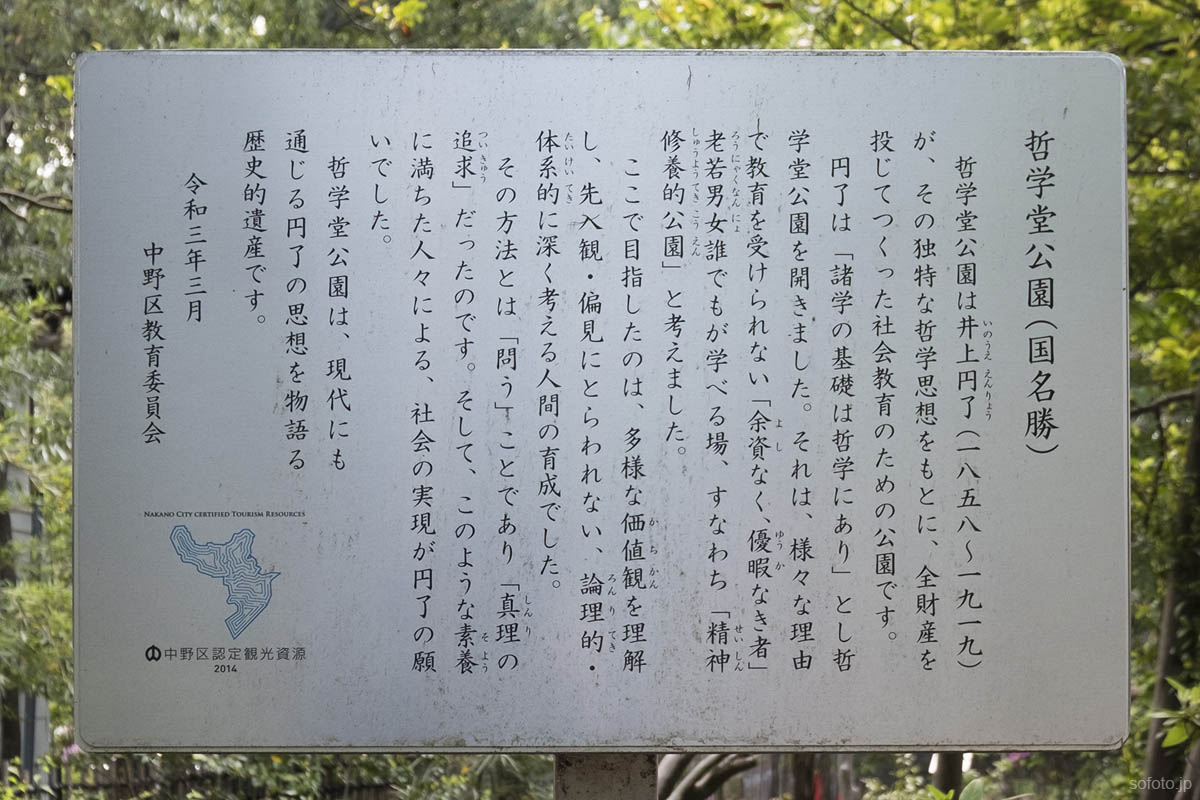 哲学堂公園(国名勝)
哲学堂公園は井上円了(一八五八〜一九一九)
が、その独特な哲学思想をもとに、全財産を
投じてつくった社会教育のための公園です。
円了は「諸学の基礎は哲学にあり」とし哲
学堂公園を開きました。それは、様々な理由
で教育を受けられない「余資なく、優暇なき者」
老若男女誰でもが学べる場、すなわち「精神
修養的公園」と考えました。
ここで目指したのは、多様な価値観を理解
し、先入観・偏見にとらわれない、論理的・
体系的に深く考える人間の育成でした。
その方法とは「問う」ことであり「真理の
追求」だったのです。そして、このような素養
に満ちた人々による、社会の実現が円了の願
いでした。
哲学堂公園は、現代にも
通じる円了の思想を物語る
歴史的遺産です。
令和三年三月
中野区教育委員会
NAKANO CITY CERTIFIED TOURISM RESOURCES
中野区認定観光資源
2014
sofoto.jp